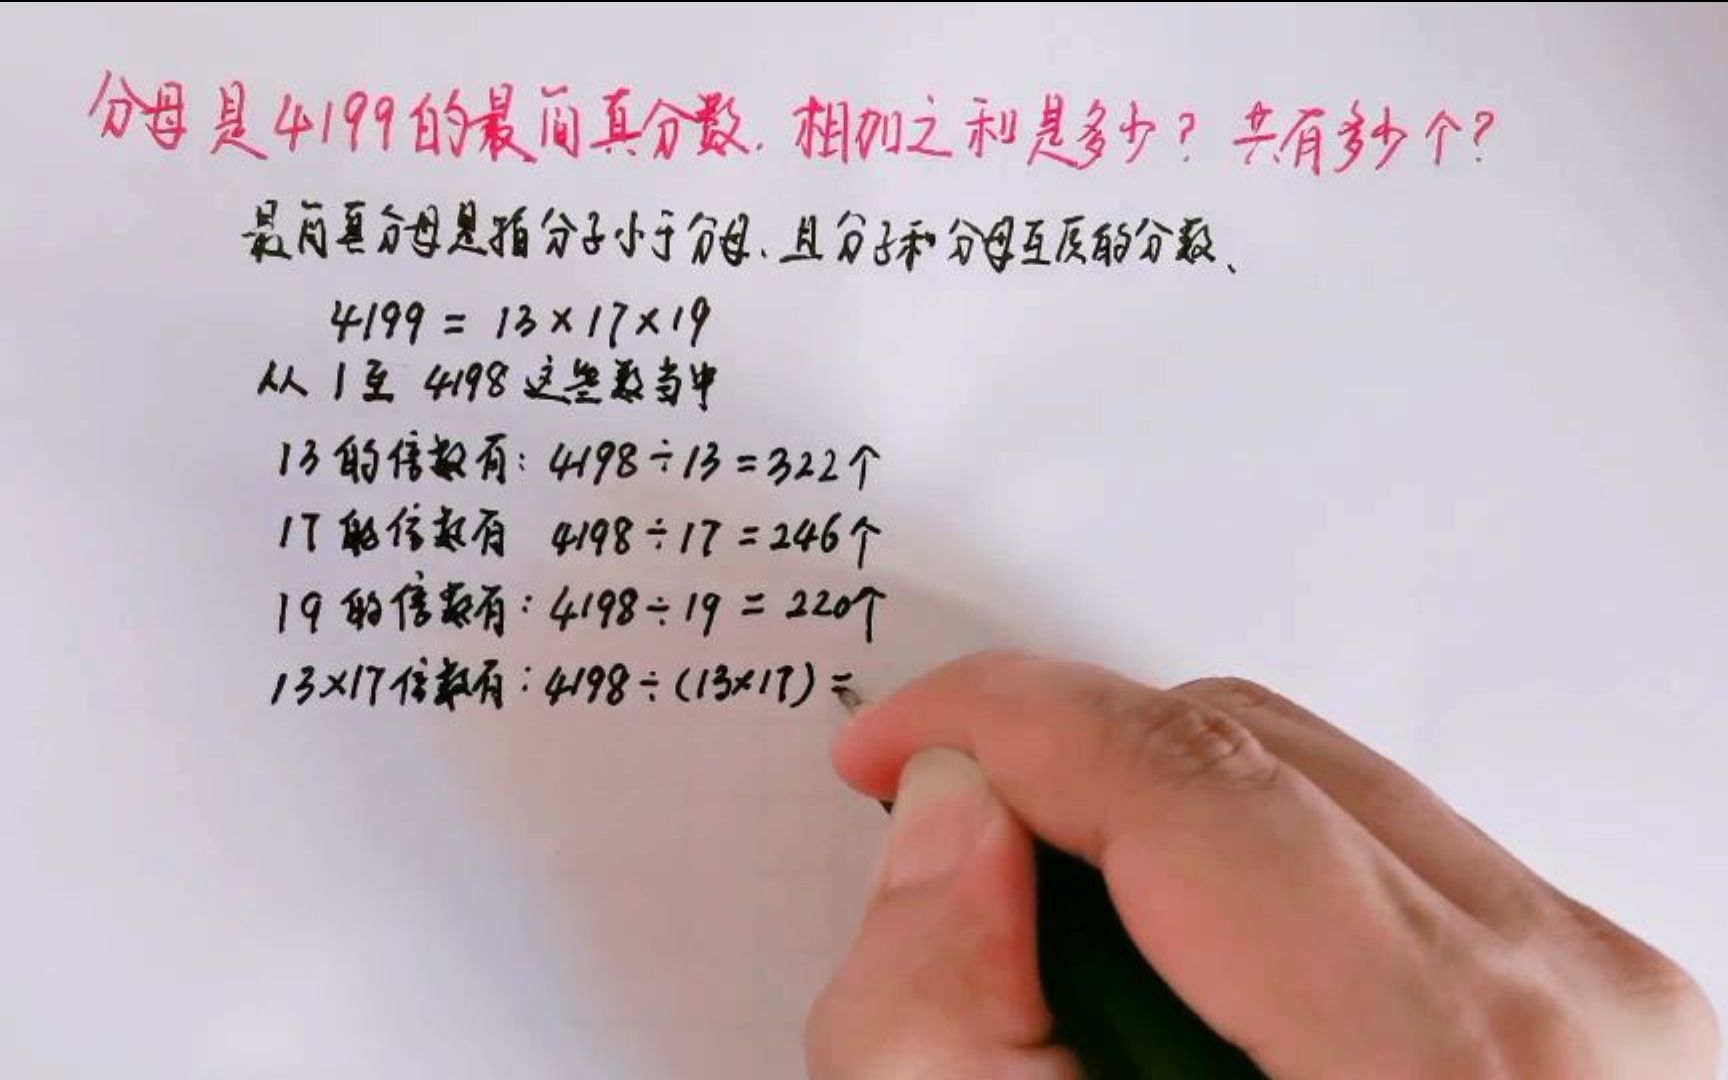 分母是4199的最简真分数.相加之和是多少?共有多少个?
最简真分母是指分子小于分母、且分子和分母互质的分数、
4199 = 13×17×19
从1至4198这些数当中
13的倍数有:4198÷13=322个
17的倍数有 4198÷17=246个
19的倍数有:4198÷19=220个
13×17倍数有:4198÷(13×17)=